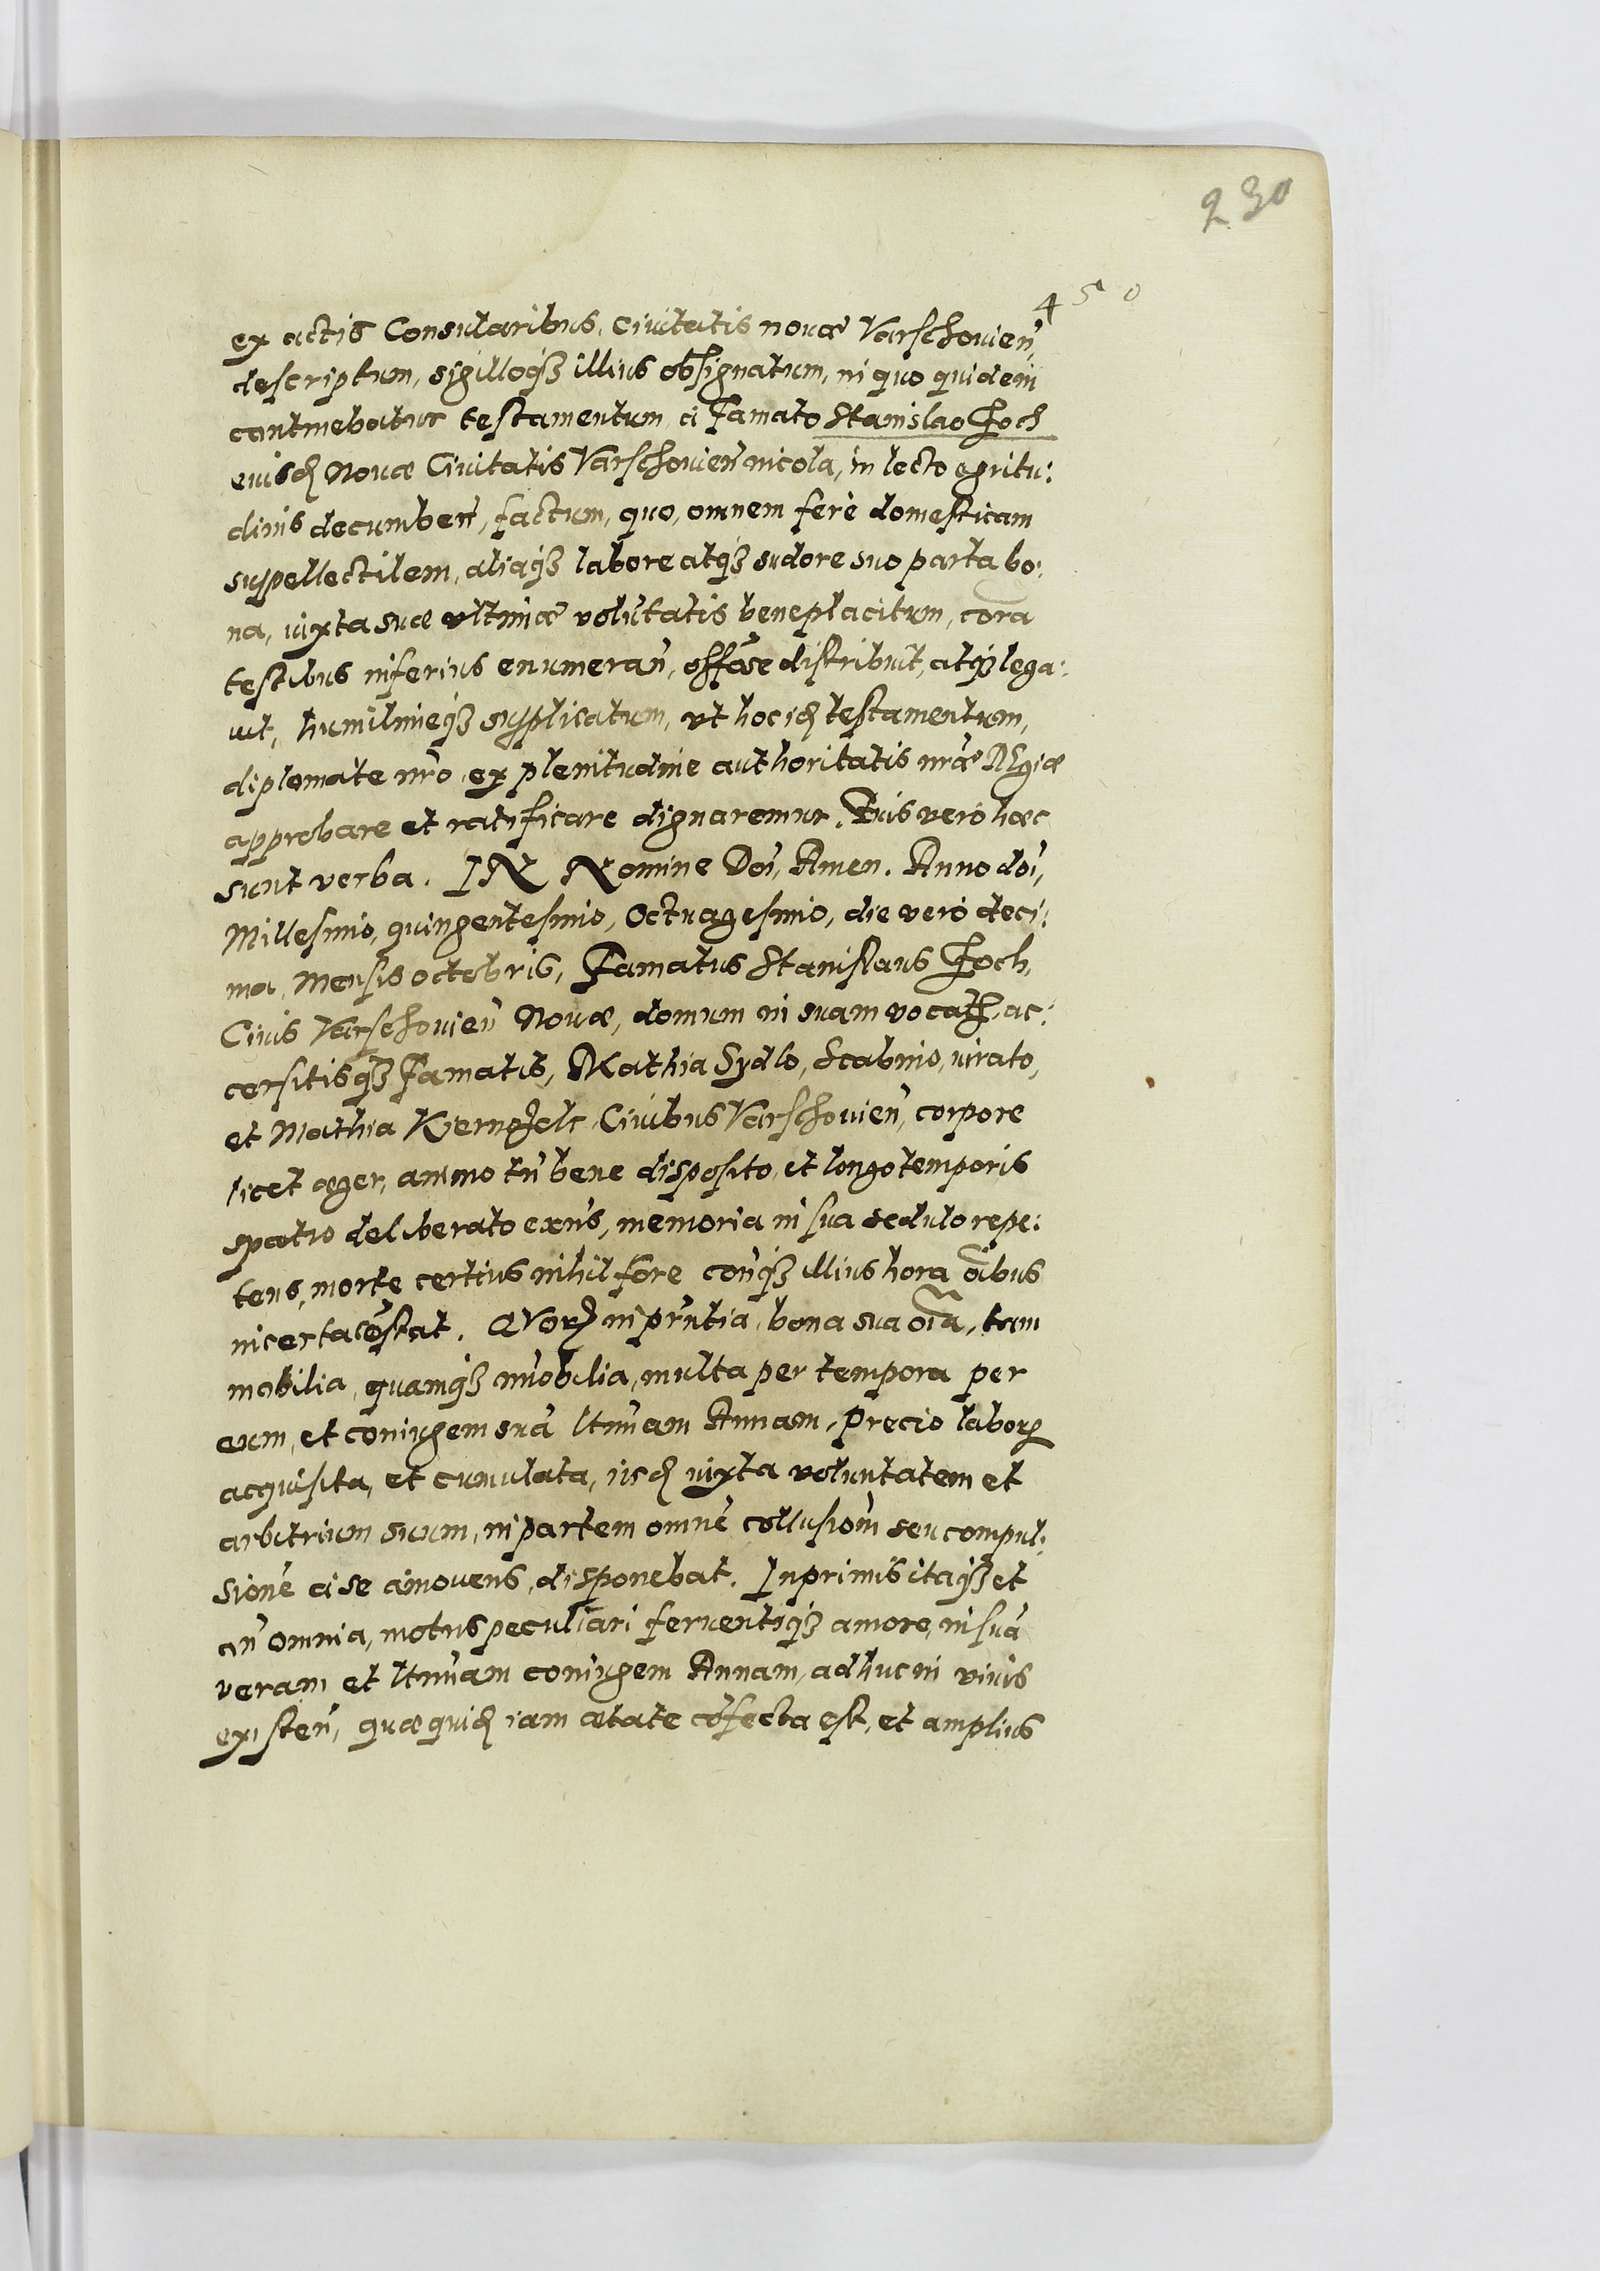 230
450
ex actis Consularibus, Ciuitatis nouæ Varschouien̄,
descriptum, sigilloqȝ illius obsignatum, in quo quidem
continebatur testamentum à Famato Stanislao Foch
eiusd Nouæ Ciuitatis Varschouien̄ incola, in lecto egritu:
dinis decumben̄, factum, quo, omnem ferè domesticam
suppellectilem, aliaqȝ labore atqȝ sudore suo parta bo:
na, iuxta suæ vltimæ volūtatis beneplacitum, corā
testibus inferius enumeran̄, offōse distribuit, atqȝ lega:
uit, humilimeqȝ supplicatum, vt hoc id testamentum,
diplomate nrō, ex plenitudine authoritatis nrāe Rgiæ
approbare et ratificare dignaremur. Cuius verò hæc
sunt verba. IN Nomine Doī, Amen. Anno doī,
Millesimo, quingentesimo, Octuagesimo, die verò deci:
ma, Mensis octobris, Famatus Stanislaus Foch,
Ciuis Varschouien̄ Nouæ, domum in suam vocatis, ac:
cersitisqȝ Famatis, Mathia Sydlo, Scabino, iurato,
et Mathia Kiernofelt Ciuibus Varschouien̄, corpore
licet æger, animo tn̄ bene disposito, et longo temporis
spatio deliberato exn̄s, memoria in sua sedulo repe:
tens, morte certius nihil fore con̄qȝ illius hora oībus
incerta cōstat. QVorȝ in prn̄tia, bona sua oīa, tam
mobilia, quamqȝ īmobilia, multa per tempora per
eum, et coniugem suā ltīmam Annam, precio laborȝ
acquisita, et cumulata, iisd iuxta voluntatem et
arbitrium suum, in partem omnē collusiōm seu compul:
sionē à se amouens, disponebat. Inprimis itaqȝ et
an̄ omnia, motus peculiari feruentiqȝ amore, in suā
veram et ltīmam coniugem Annam, adhuc in viuis
existen̄, quæ quid iam ætate cōfecta est, et amplius